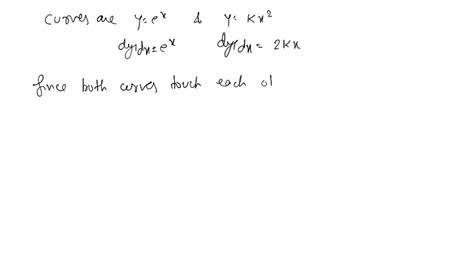 curves are y=eˣ & y=Kx²
dy/dx=eˣ dy/dx=2Kx
Since both curves touch each ot